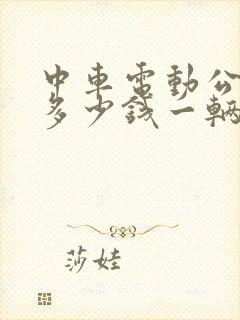 中車電動公
多少錢一輛
莎娃